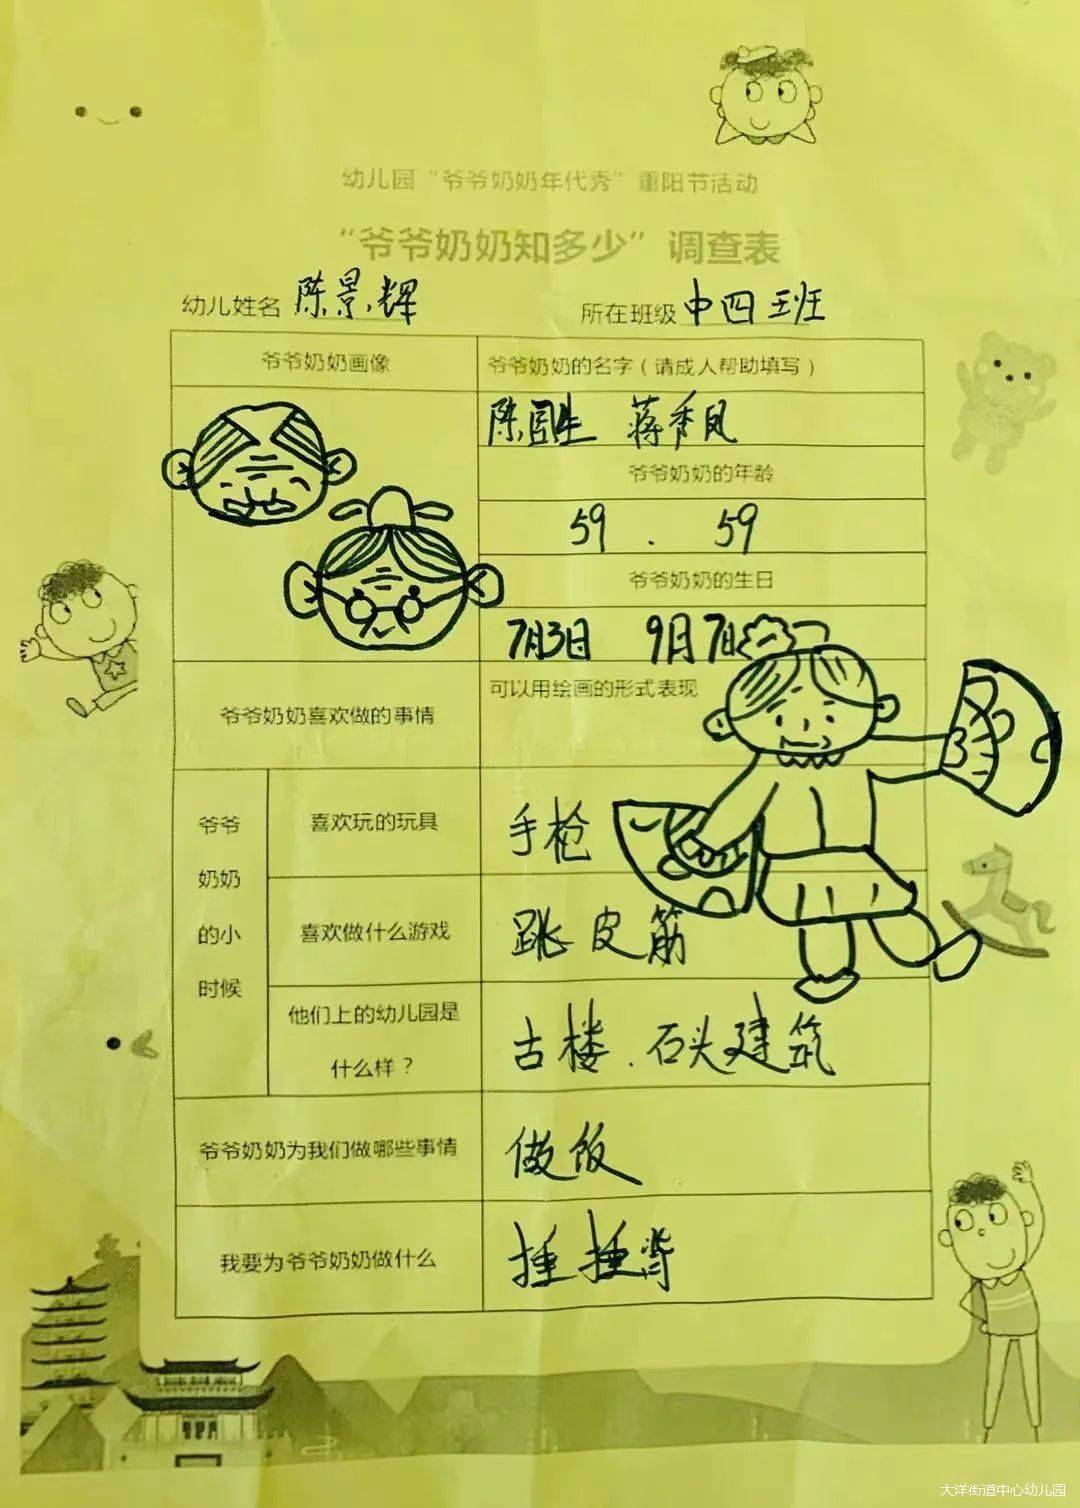 幼儿园“爷爷奶奶年代秀”重阳节活动
“爷爷奶奶知多少”调查表
幼儿姓名 陈景辉 所在班级 中四班
爷爷奶奶画像
爷爷奶奶的名字（请成人帮助填写）
陈国生 蒋秀凤
爷爷奶奶的年龄
59 . 59
爷爷奶奶的生日
7月3日 9月7日
爷爷奶奶喜欢做的事情
可以用绘画的形式表现
爷爷
奶奶
的小
时候
喜欢玩的玩具
手枪
喜欢做什么游戏
跳皮筋
他们上的幼儿园是
什么样？
古楼.石头建筑
爷爷奶奶为我们做哪些事情
做饭
我要为爷爷奶奶做什么
捶捶背
大洋街道中心幼儿园